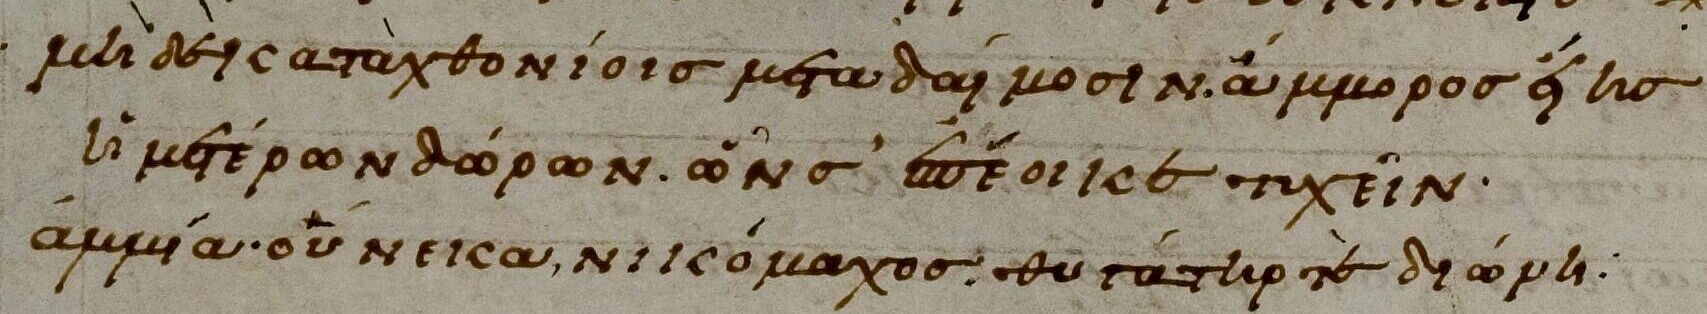 μὴ δὲ καταχθονίοισ μετα δαίμοσιν. ἄμμορος ἔησ
ἡμετέρων δώρων. ὧν σ' ἐπέοικε τυχεῖν.
ἀμμία. οὕνεκα, νικόμαχοσ. θυγάτηρ τὲ διώμη.